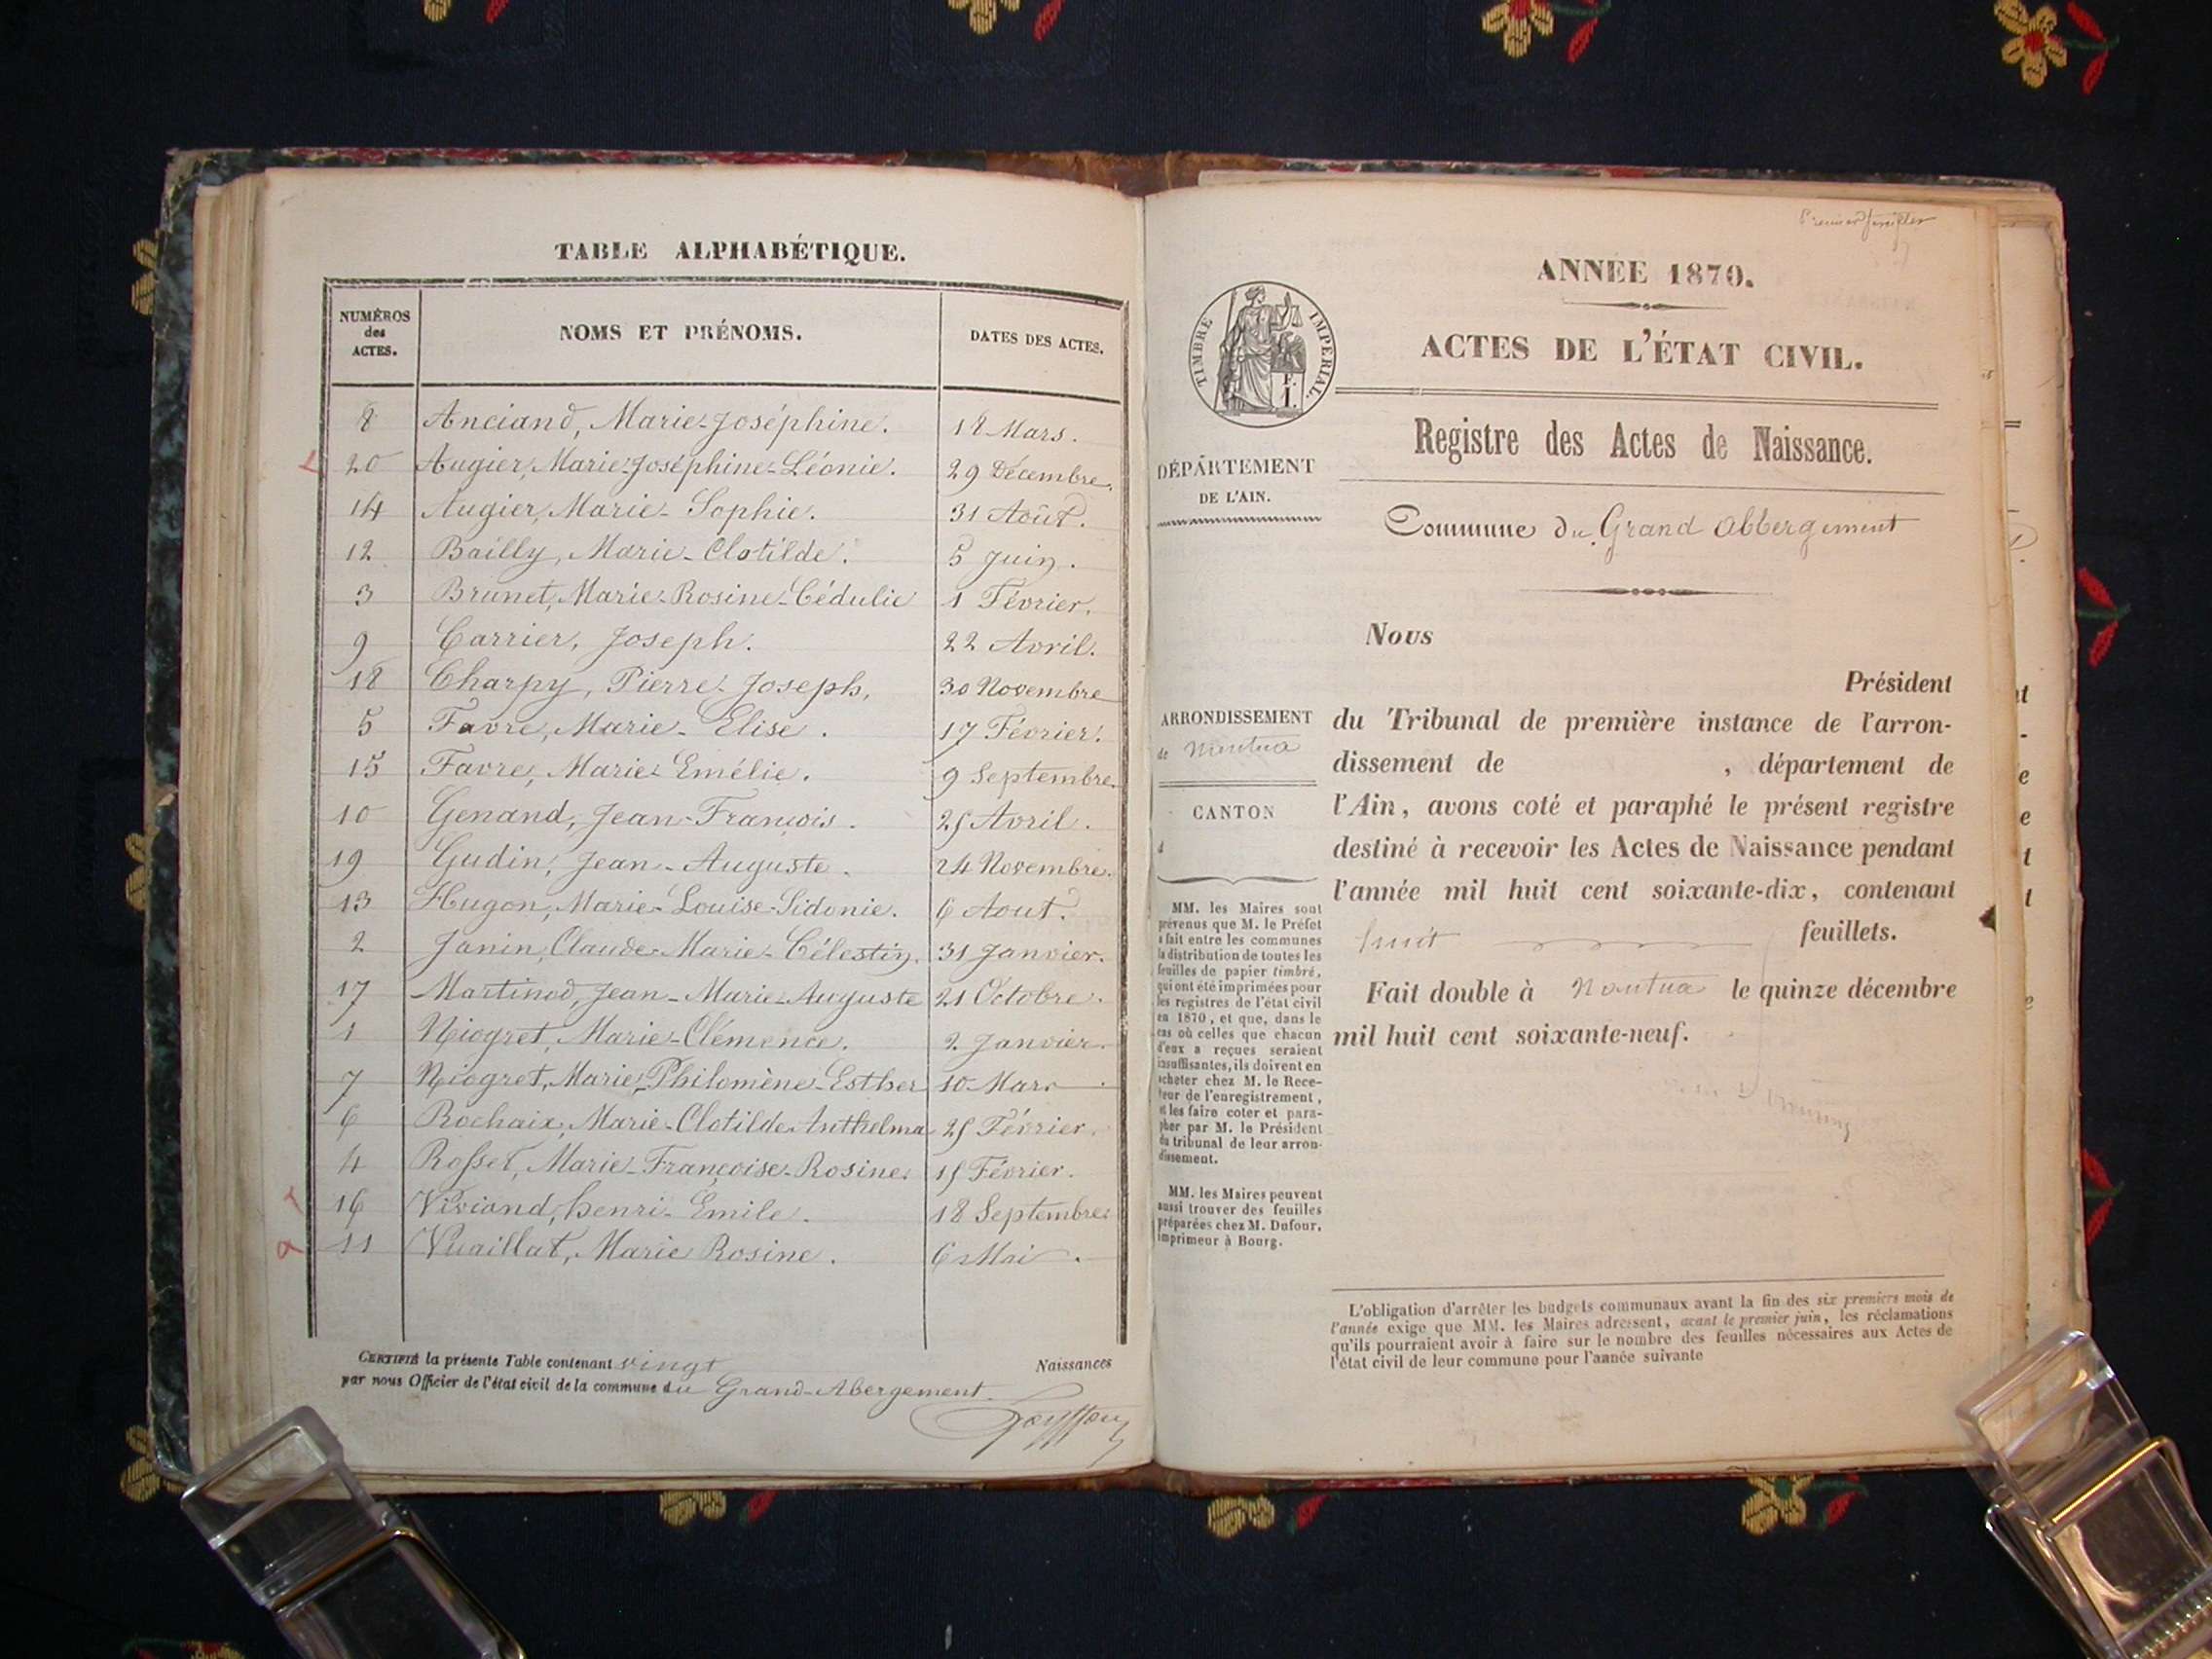 TABLE ALPHABÉTIQUE.
NUMÉROS
des
ACTES.
NOMS ET PRÉNOMS.
DATES DES ACTES.
8 Anciand, Marie-Joséphine. 18 Mars.
20 Augier, Marie-Joséphine-Léonie. 29 Décembre.
14 Augier, Marie-Sophie. 31 Août.
12 Bailly, Marie-Clotilde. 5 Juin.
3 Brunet, Marie-Rosine-Cédulie 1 Février.
9 Carrier, Joseph. 22 Avril.
18 Charpy, Pierre-Joseph, 30 Novembre
5 Favre, Marie-Elise. 17 Février.
15 Favre, Marie-Emélie. 9 Septembre.
10 Genand, Jean-François. 25 Avril.
19 Gudin, Jean-Auguste. 24 Novembre.
13 Hugon, Marie-Louise-Sidonie. 6 Aout.
2 Janin, Claude-Marie-Célestin. 31 Janvier.
17 Martinod, Jean-Marie-Auguste 21 Octobre.
1 Niogret, Marie-Clémence. 2 Janvier.
7 Niogret, Marie-Philomène-Esther 10 Mars
6 Rochaix, Marie-Clotilde-Anthelma 25 Février.
4 Rosset, Marie-Françoise-Rosine. 15 Février.
16 Viviand, henri-Emile. 18 Septembre.
11 Vuaillat, Marie Rosine. 6 Mai.
CERTIFIÉ la présente Table contenant vingt Naissances
par nous Officier de l'état civil de la commune du Grand-Abergement
Premier feuillet
ANNÉE 1870.
TIMBRE IMPÉRIAL.
ACTES DE L'ÉTAT CIVIL.
Registre des Actes de Naissance.
DÉPARTEMENT
DE L'AIN.
Commune du Grand Abbergement
Nous
Président
ARRONDISSEMENT
de Nantua
CANTON
d
du Tribunal de première instance de l'arron-
dissement de , département de
l'Ain, avons coté et paraphé le présent registre
destiné à recevoir les Actes de Naissance pendant
l'année mil huit cent soixante-dix, contenant
huit feuillets.
Fait double à Nantua le quinze décembre
mil huit cent soixante-neuf.
MM. les Maires sont
prévenus que M. le Préfet
a fait entre les communes
la distribution de toutes les
feuilles de papier timbré,
qui ont été imprimées pour
les registres de l'état civil
en 1870, et que, dans le
cas où celles que chacun
d'eux a reçues seraient
insuffisantes, ils doivent en
acheter chez M. le Rece-
veur de l'enregistrement,
et les faire coter et para-
pher par M. le Président
du tribunal de leur arron-
dissement.
MM. les Maires peuvent
aussi trouver des feuilles
préparées chez M. Dufour,
imprimeur à Bourg.
L'obligation d'arrêter les budgets communaux avant la fin des six premiers mois de
l'année exige que MM. les Maires adressent, avant le premier juin, les réclamations
qu'ils pourraient avoir à faire sur le nombre des feuilles nécessaires aux Actes de
l'état civil de leur commune pour l'année suivante